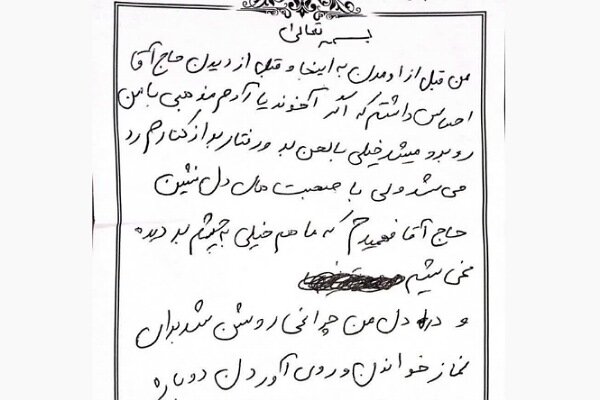 بسمه تعالی
من قبل از اومدن به اینجا و قبل از دیدن حاج آقا
احساس داشتم که اگر آخوند یا آدم مذهبی با من
روبرو میشد خیلی با لحن بد و رفتار بد از کنارم رد
می شد ولی با صحبت های دل نشین
حاج آقا فهمیدم که ما هم خیلی به چشم بد دیده
نمی شیم
و در دل من چراغی روشن شد برای
نماز خواندن و روی آوردن دوباره